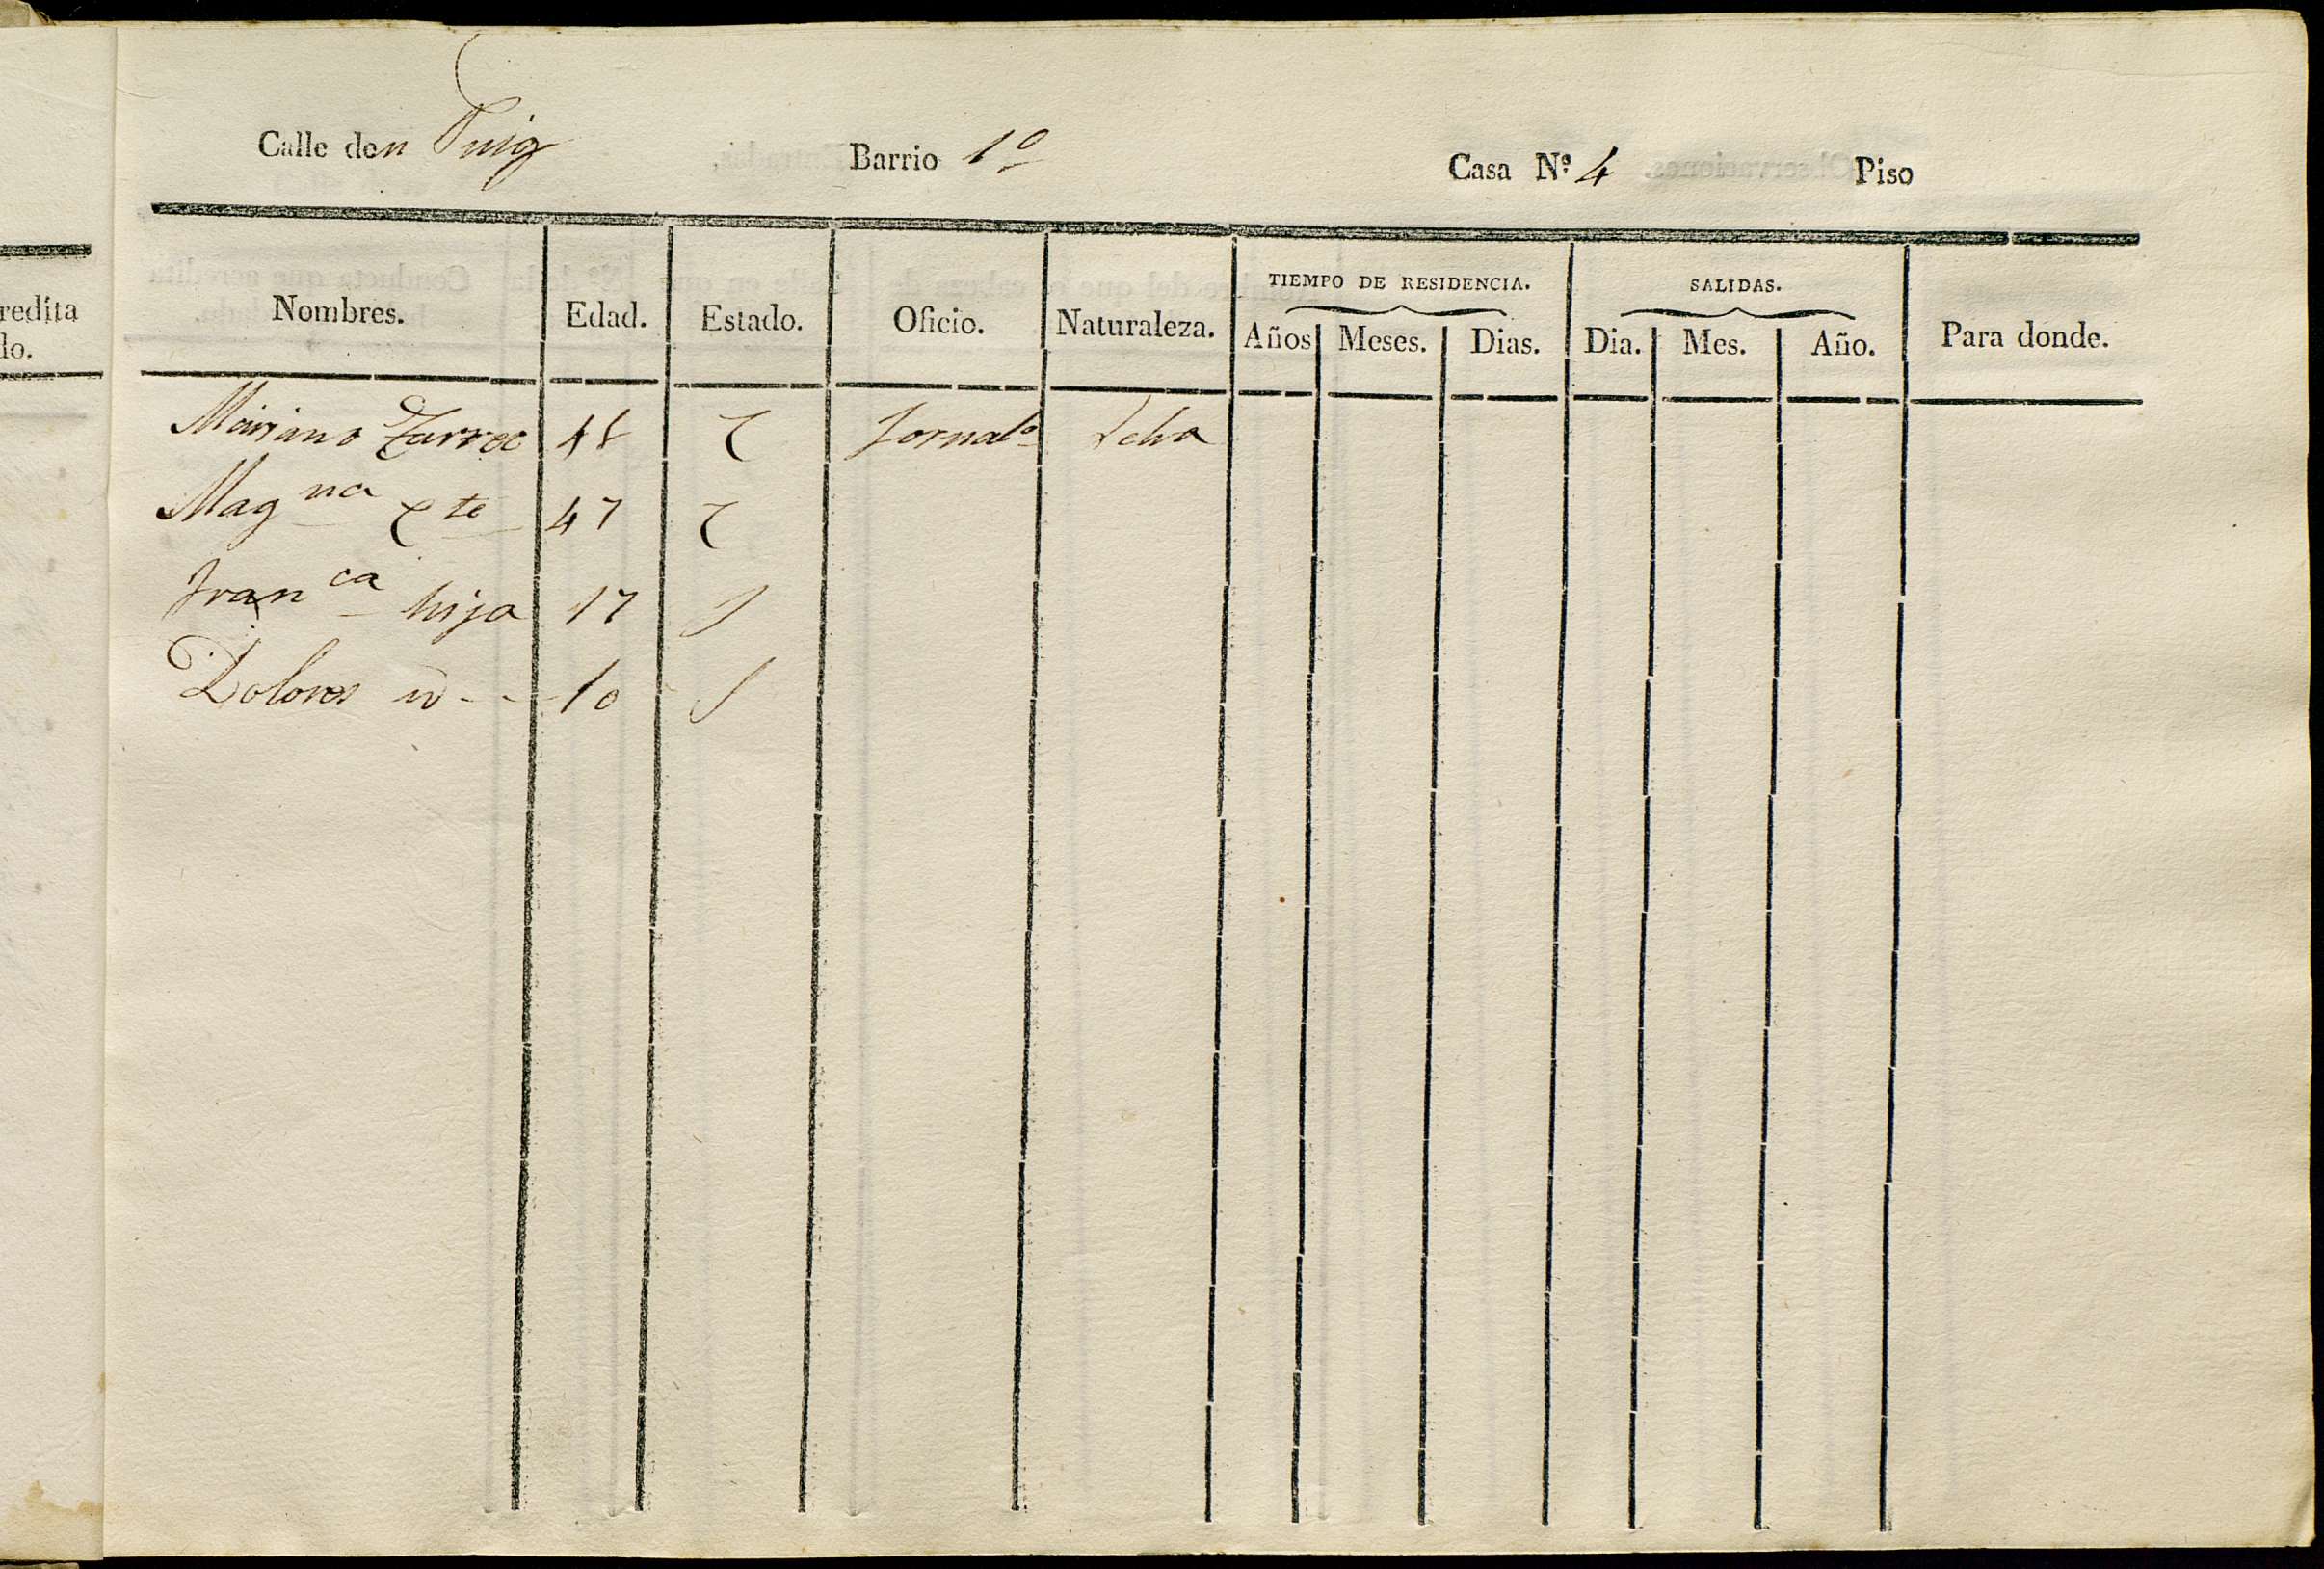 Calle den Puig Barrio 1º Casa Nº 4 Piso
redita
do.
TIEMPO DE RESIDENCIA. SALIDAS.
Nombres. Edad. Estado. Oficio. Naturaleza. Años Meses. Dias. Dia. Mes. Año. Para donde.
Mariano 48 C Jornalº Selva
Magna Cte 47 C
Franca hija 17 S
Dolores id - - 10 S